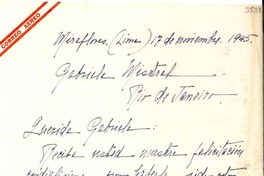 CORREO AEREO
Miraflores (Lima) 17 de noviembre. 1945.
Gabriela Mistral
Rio de Janeiro.
Querida Gabriela:
Reciba usted nuestra felicitación